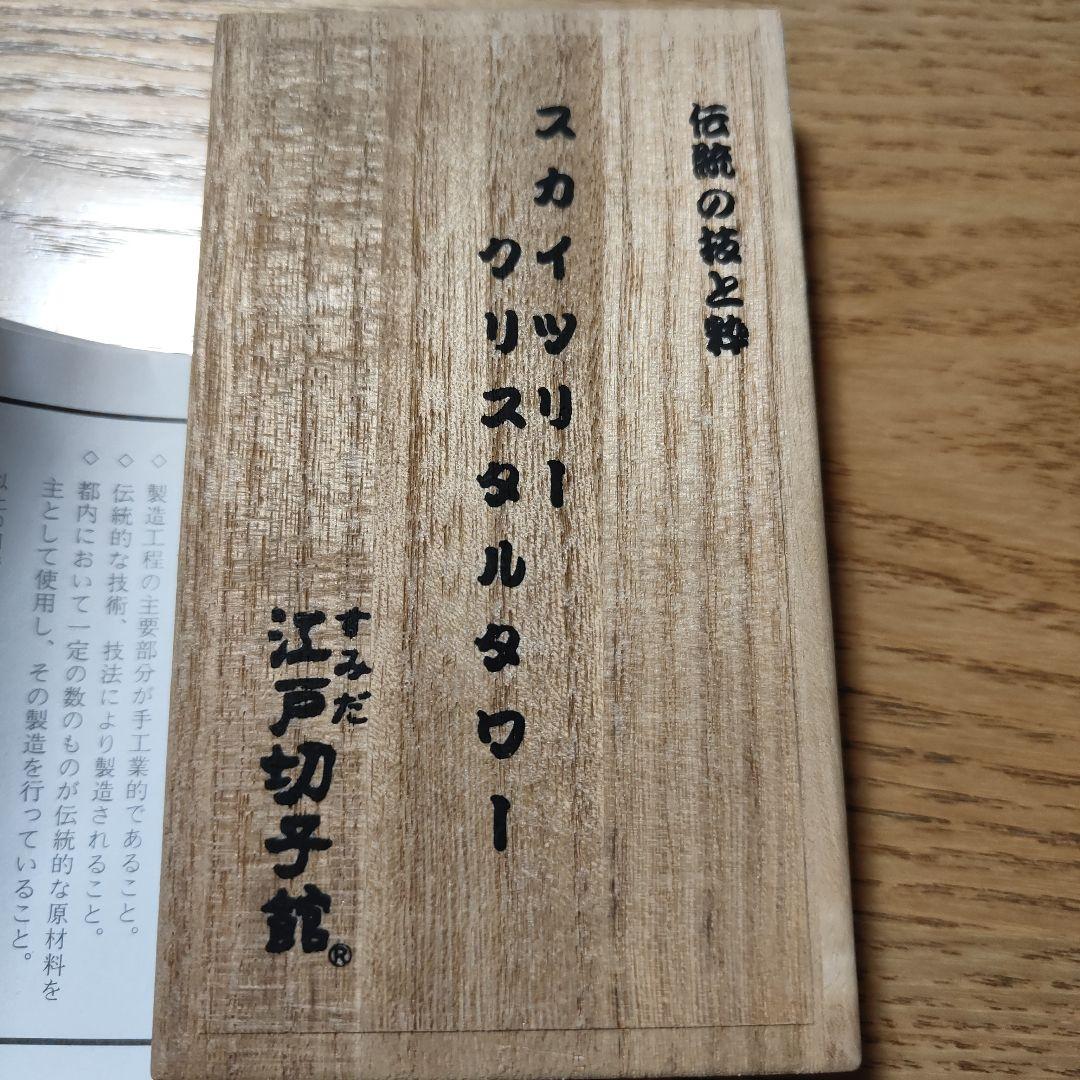 伝統の技と粋
スカイツリー
クリスタルタワー
すみだ
江戸切子館®
◇ 製造工程の主要部分が手工業的であること。
◇ 伝統的な技術、技法により製造されること。
◇ 都内において一定の数のものが伝統的な原材料を
主として使用し、その製造を行っていること。